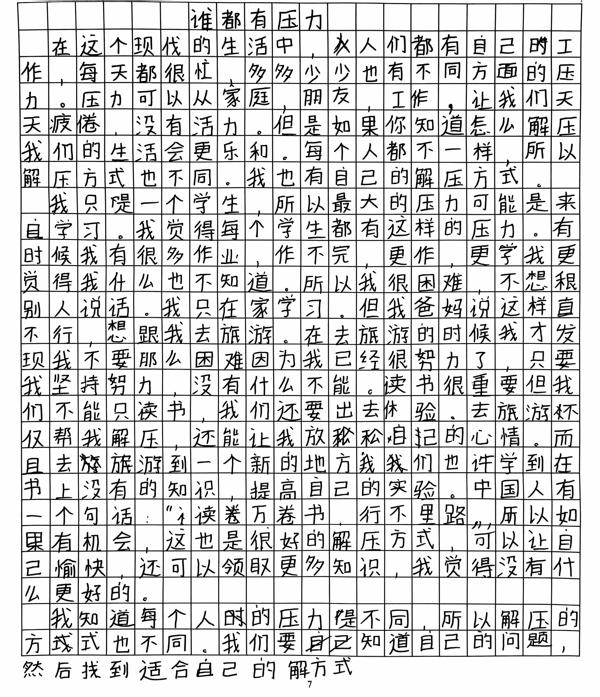 谁都有压力
在这个现代的生活中，人人们都有自己的工
作，每天都很忙，多多少少也有不同方面的压
力。压力可以从家庭，朋友，工作，让我们天
天疲倦，没有活力。但是如果你知道怎么解压
我们的生活会更乐和。每个人都不一样，所以
解压方式也不同。我也有自己的解压方式。
我只是一个学生，所以最大的压力可能是来
自学习。我觉得每个学生都有这样的压力。有
时候我有很多作业，作不完，更作，更学我更
觉得我什么也不知道。所以我很困难，不想跟
别人说话。我只在家学习。但我爸妈说这样直
不行，想跟我去旅游。在去旅游的时候我才发
现我不要那么困难因为我已经很努力了，只要
我坚持努力，没有什么不能。读书很重要但我
们不能只读书，我们还要出去体验。去旅游不
仅帮我解压，还能让我放松松自己的心情。而
且去旅旅游到一个新的地方我我们也许学到在
书上没有的知识，提高自己的实验。中国人有
一个句话："读卷万卷书，行不里路"，所以如
果有机会，这也是很好的解压方式，可以让自
己愉快，还可以领取更多知识，我觉得没有什
么更好的。
我知道每个人时的压力是不同，所以解压的
方式式也不同。我们要自己知道自己的问题，
然后找到适合自己的解方式
7